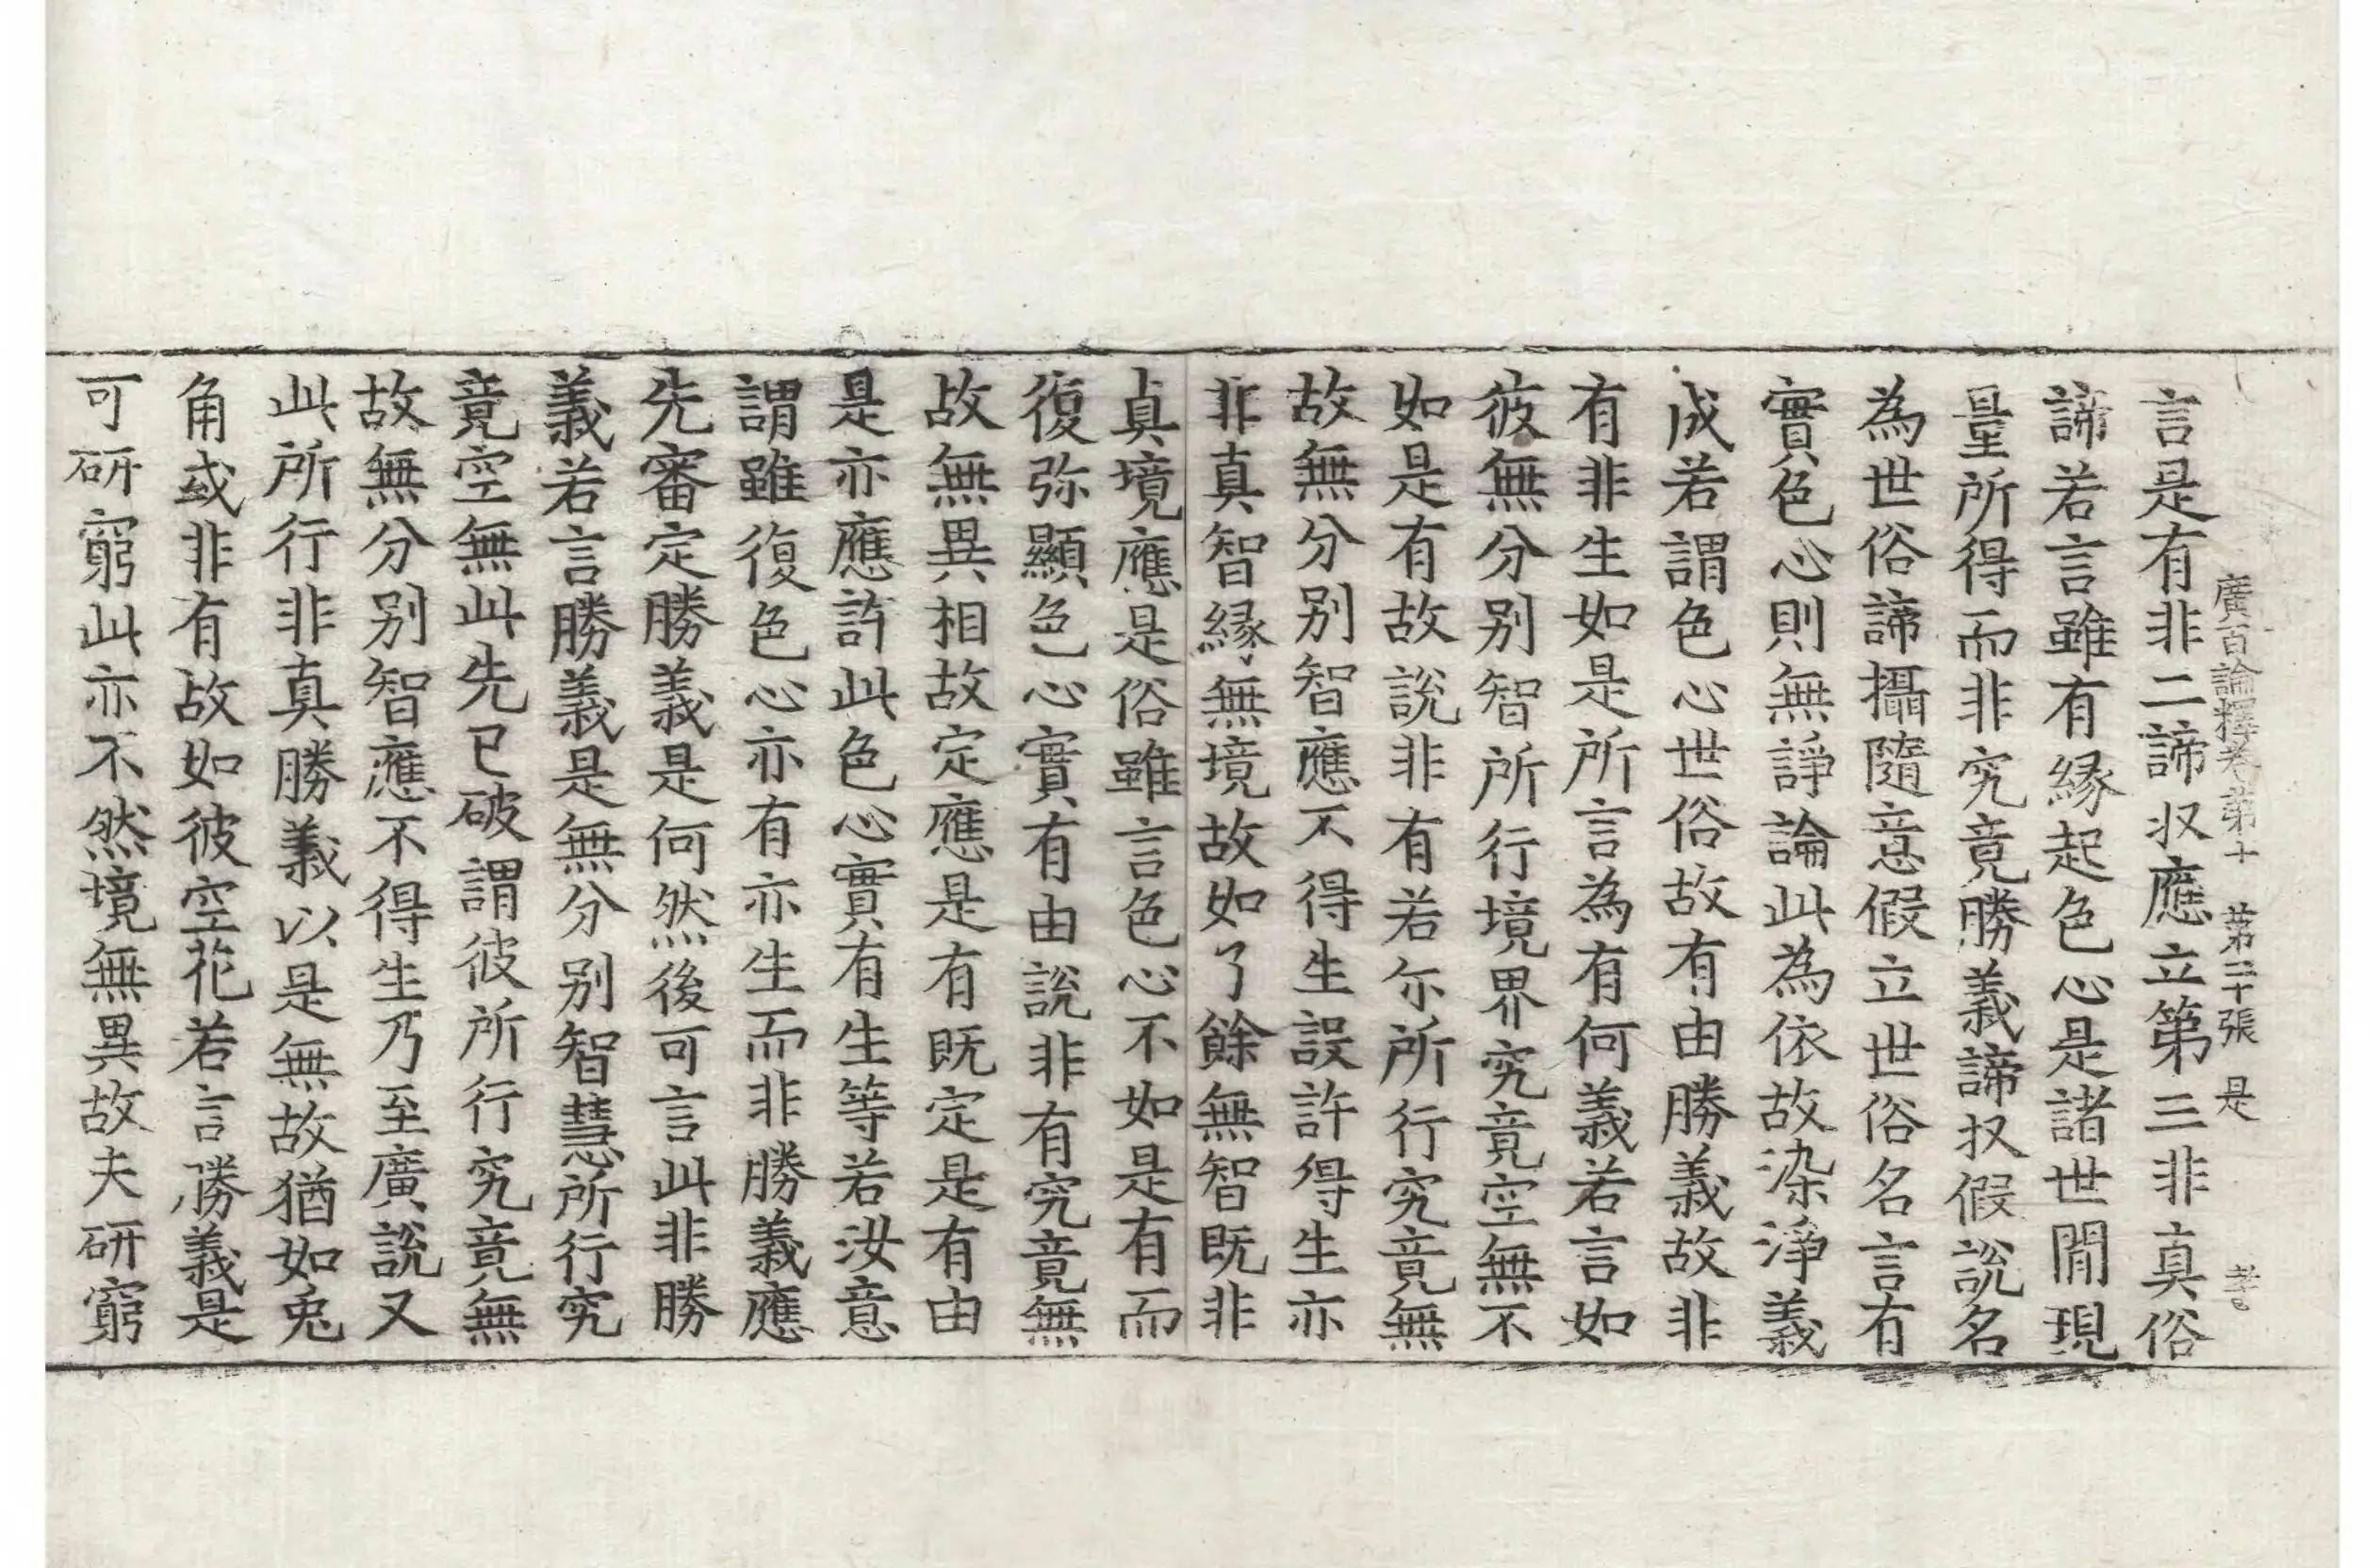 廣百論釋卷第十 第二十張 是
言是有非二諦収應立第三非真俗
諦若言雖有縁起色心是諸世間現
量所得而非究竟勝義諦収假說名
為世俗諦攝隨意假立世俗名言有
實色心則無諍論此為依故染淨義
成若謂色心世俗故有由勝義故非
有非生如是所言為有何義若言如
彼無分別智所行境界究竟空無不
如是有故說非有若尒所行究竟無
故無分別智應不得生設許得生亦
非真智縁無境故如了餘無智既非
真境應是俗雖言色心不如是有而
復弥顯色心實有由說非有究竟無
故無異相故定應是有既定是有由
是亦應許此色心實有生等若汝意
謂雖復色心亦有亦生而非勝義應
先審定勝義是何然後可言此非勝
義若言勝義是無分別智慧所行究
竟空無此先已破謂彼所行究竟無
故無分別智應不得生乃至廣說又
此所行非真勝義以是無故猶如兎
角或非有故如彼空花若言勝義是
可研窮此亦不然境無異故夫研窮